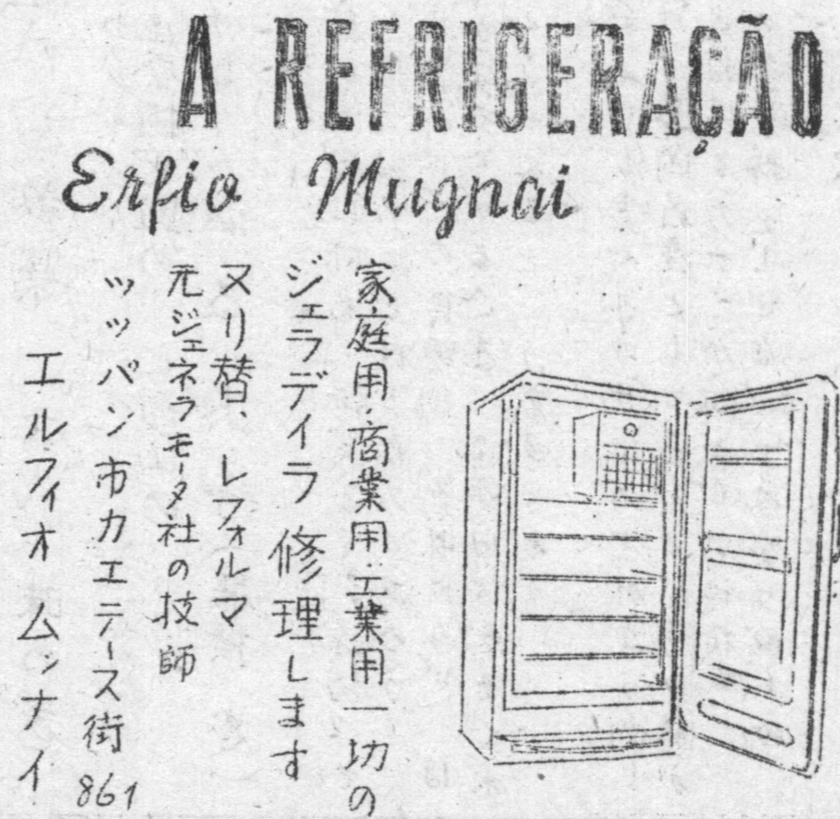 A REFRIGERAÇÃO
Erfio Mugnai
家庭用・商業用・工業用一切の
ジェラデイラ修理します
ヌリ替、レフォルマ
元ジェネラモータ社の技師
ツッパン市カエテース街861
エルフィオ ムンナイ